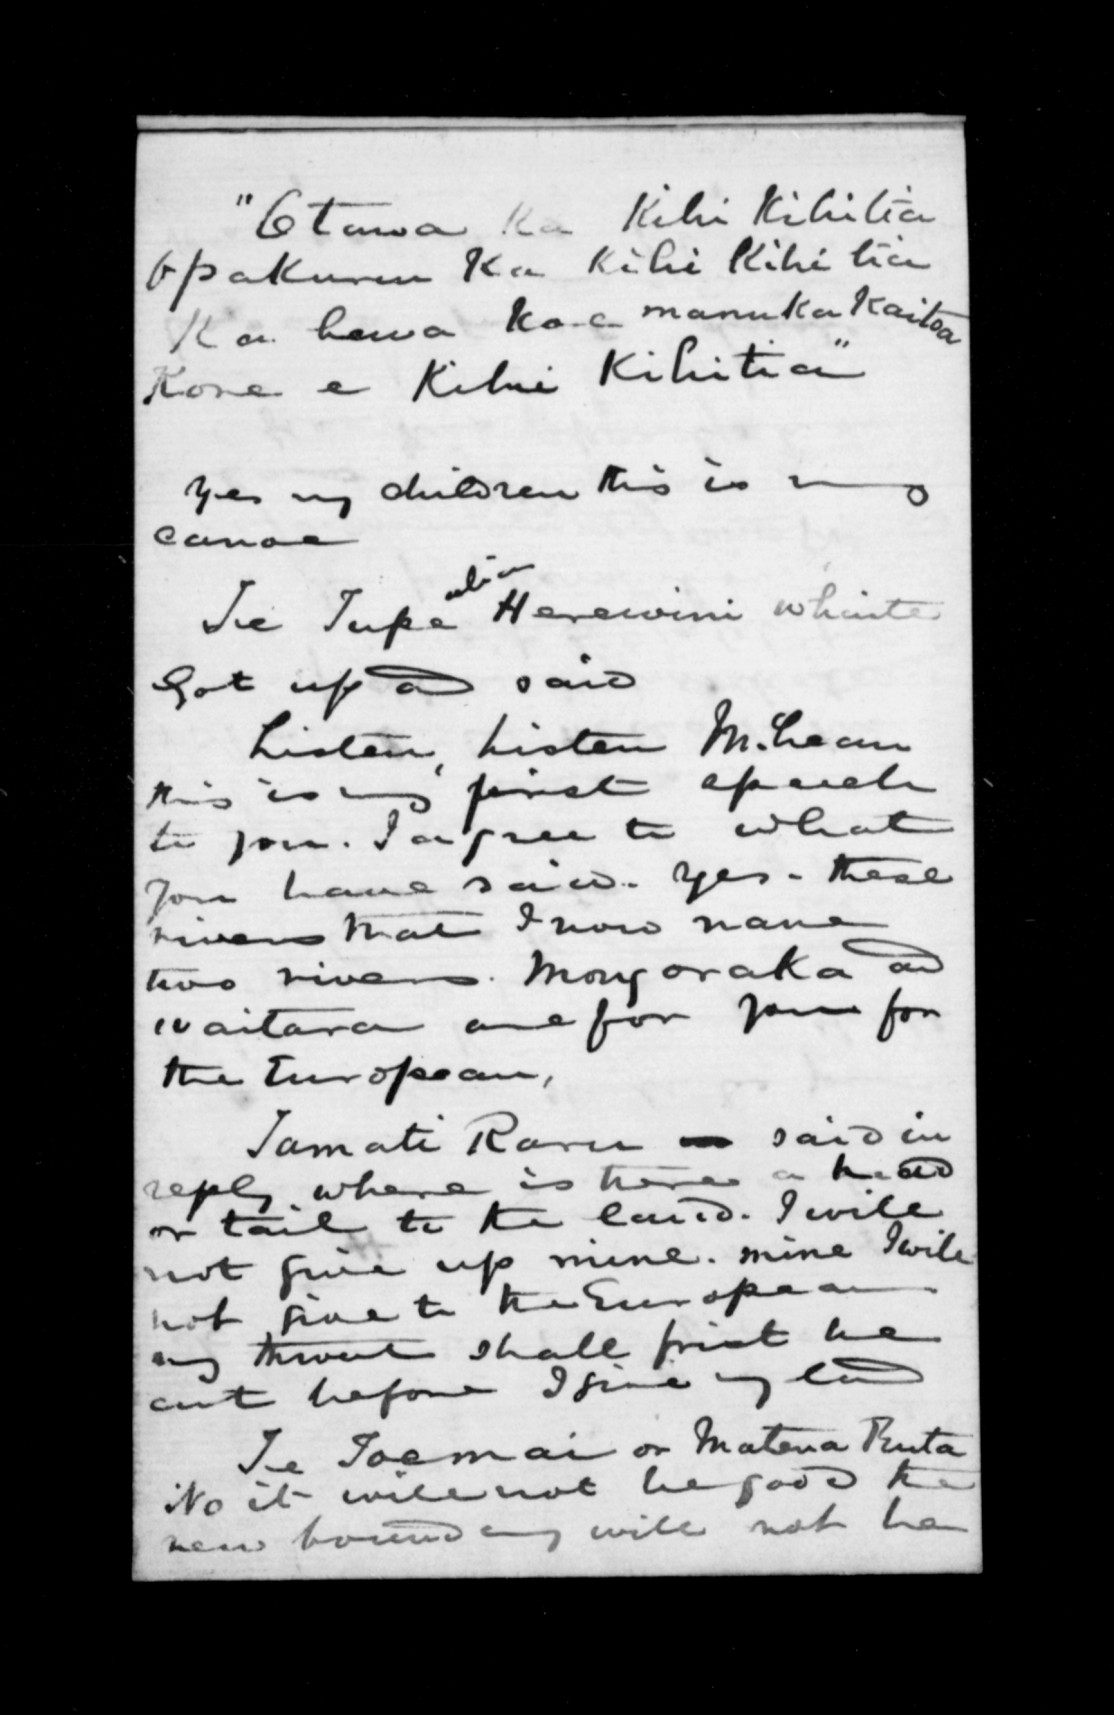 "Otawa ka Kihi Kihitia
Opakuru Ka Kihi Kihi tia
Ka hewa ko a manuka Kaitoa
Kore e Kihi Kihitia"
Yes my children this is my
canoe
Te Tupe alias Herewini whaite
Got up and said
Listen, Listen McLean
this is my first speech
to you. I agree to what
you have said. Yes - these
rivers that I now name
two rivers. Mongoraka and
Waitara are for you for
the European,
Tamati Raru said in
reply where is there a head
or tail to the land. I will
not give up mine. mine I will
not give to the European
my throat shall first be
cut before I give my land
Te Toemai or Matena Ruta
No it will not be good the
new boundary will not be